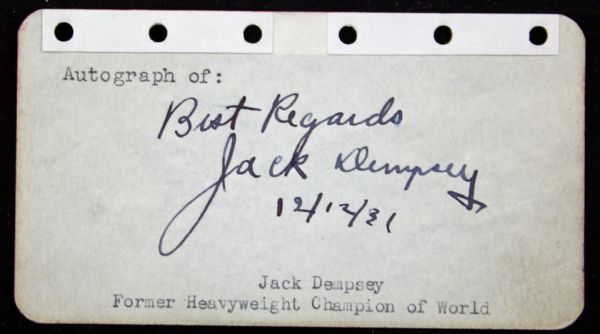 Autograph of:
Best Regards
Jack Dempsey
12/12/31
Jack Dempsey
Former Heavyweight Champion of World